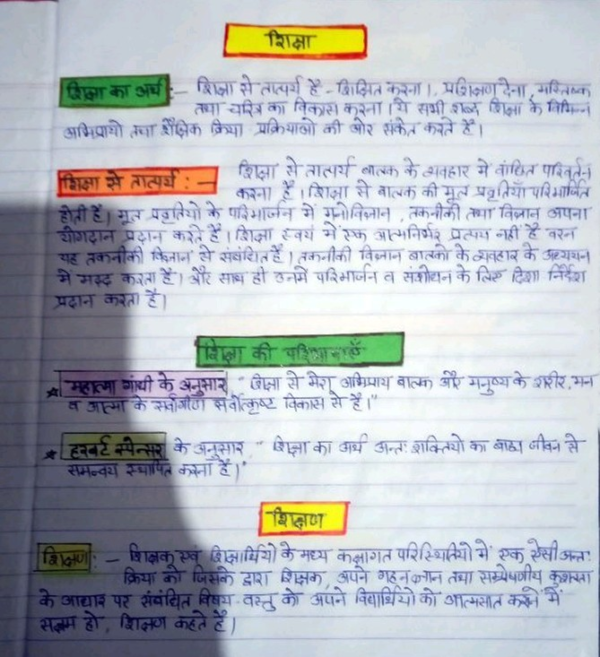 शिक्षा
शिक्षा का अर्थ :- शिक्षा से तात्पर्य है - शिक्षित करना।, प्रशिक्षण देना, मस्तिष्क
तथा चरित्र का विकास करना। ये सभी शब्द शिक्षा के विभिन्न
अभिप्रायो तथा शैक्षिक क्रिया प्रक्रियाओ की ओर संकेत करते है।
शिक्षा से तात्पर्य :- शिक्षा से तात्पर्य बालक के व्यवहार में वांछित परिवर्तन
करना है। शिक्षा से बालक की मूल प्रवृतियाँ परिमार्जित
होती है। मूल प्रवृतियो के परिमार्जन में मनोविज्ञान, तकनीकी तथा विज्ञान अपना
योगदान प्रदान करते है। शिक्षा स्वयं में एक आत्मनिर्भर प्रत्यय नहीं है वरन
यह तकनीकी विज्ञान से संबंधित है। तकनीकी विज्ञान बालको के व्यवहार के अध्ययन
में मदद करता है। और साथ ही उनमें परिमार्जन व संशोधन के लिए दिशा निर्देश
प्रदान करता है।
शिक्षा की परिभाषाएँ
★ महात्मा गांधी के अनुसार, " शिक्षा से मेरा अभिप्राय बालक और मनुष्य के शरीर, मन
व आत्मा के सर्वांगीण सर्वोत्कृष्ट विकास से है।"
★ हरबर्ट स्पेन्सर के अनुसार, " शिक्षा का अर्थ अन्तः शक्तियो का बाह्य जीवन से
समन्वय स्थापित करना है।"
शिक्षण
शिक्षण :- शिक्षक एवं शिक्षार्थियो के मध्य कक्षागत परिस्थितियो में एक ऐसी अन्तः
क्रिया को जिसके द्वारा शिक्षक, अपने गहन ज्ञान तथा सम्प्रेषणीय कुशलता
के आधार पर संबंधित विषय-वस्तु को अपने विद्यार्थियो को आत्मसात करने में
सक्षम हो, शिक्षण कहते है।